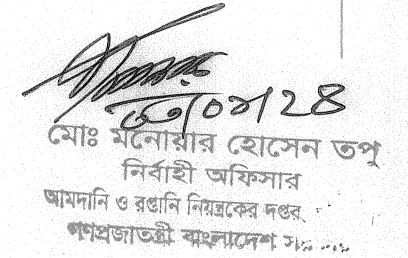 মোঃ মনোয়ার হোসেন তপু
নির্বাহী অফিসার
আমদানি ও রপ্তানি নিয়ন্ত্রকের দপ্তর
গণপ্রজাতন্ত্রী বাংলাদেশ